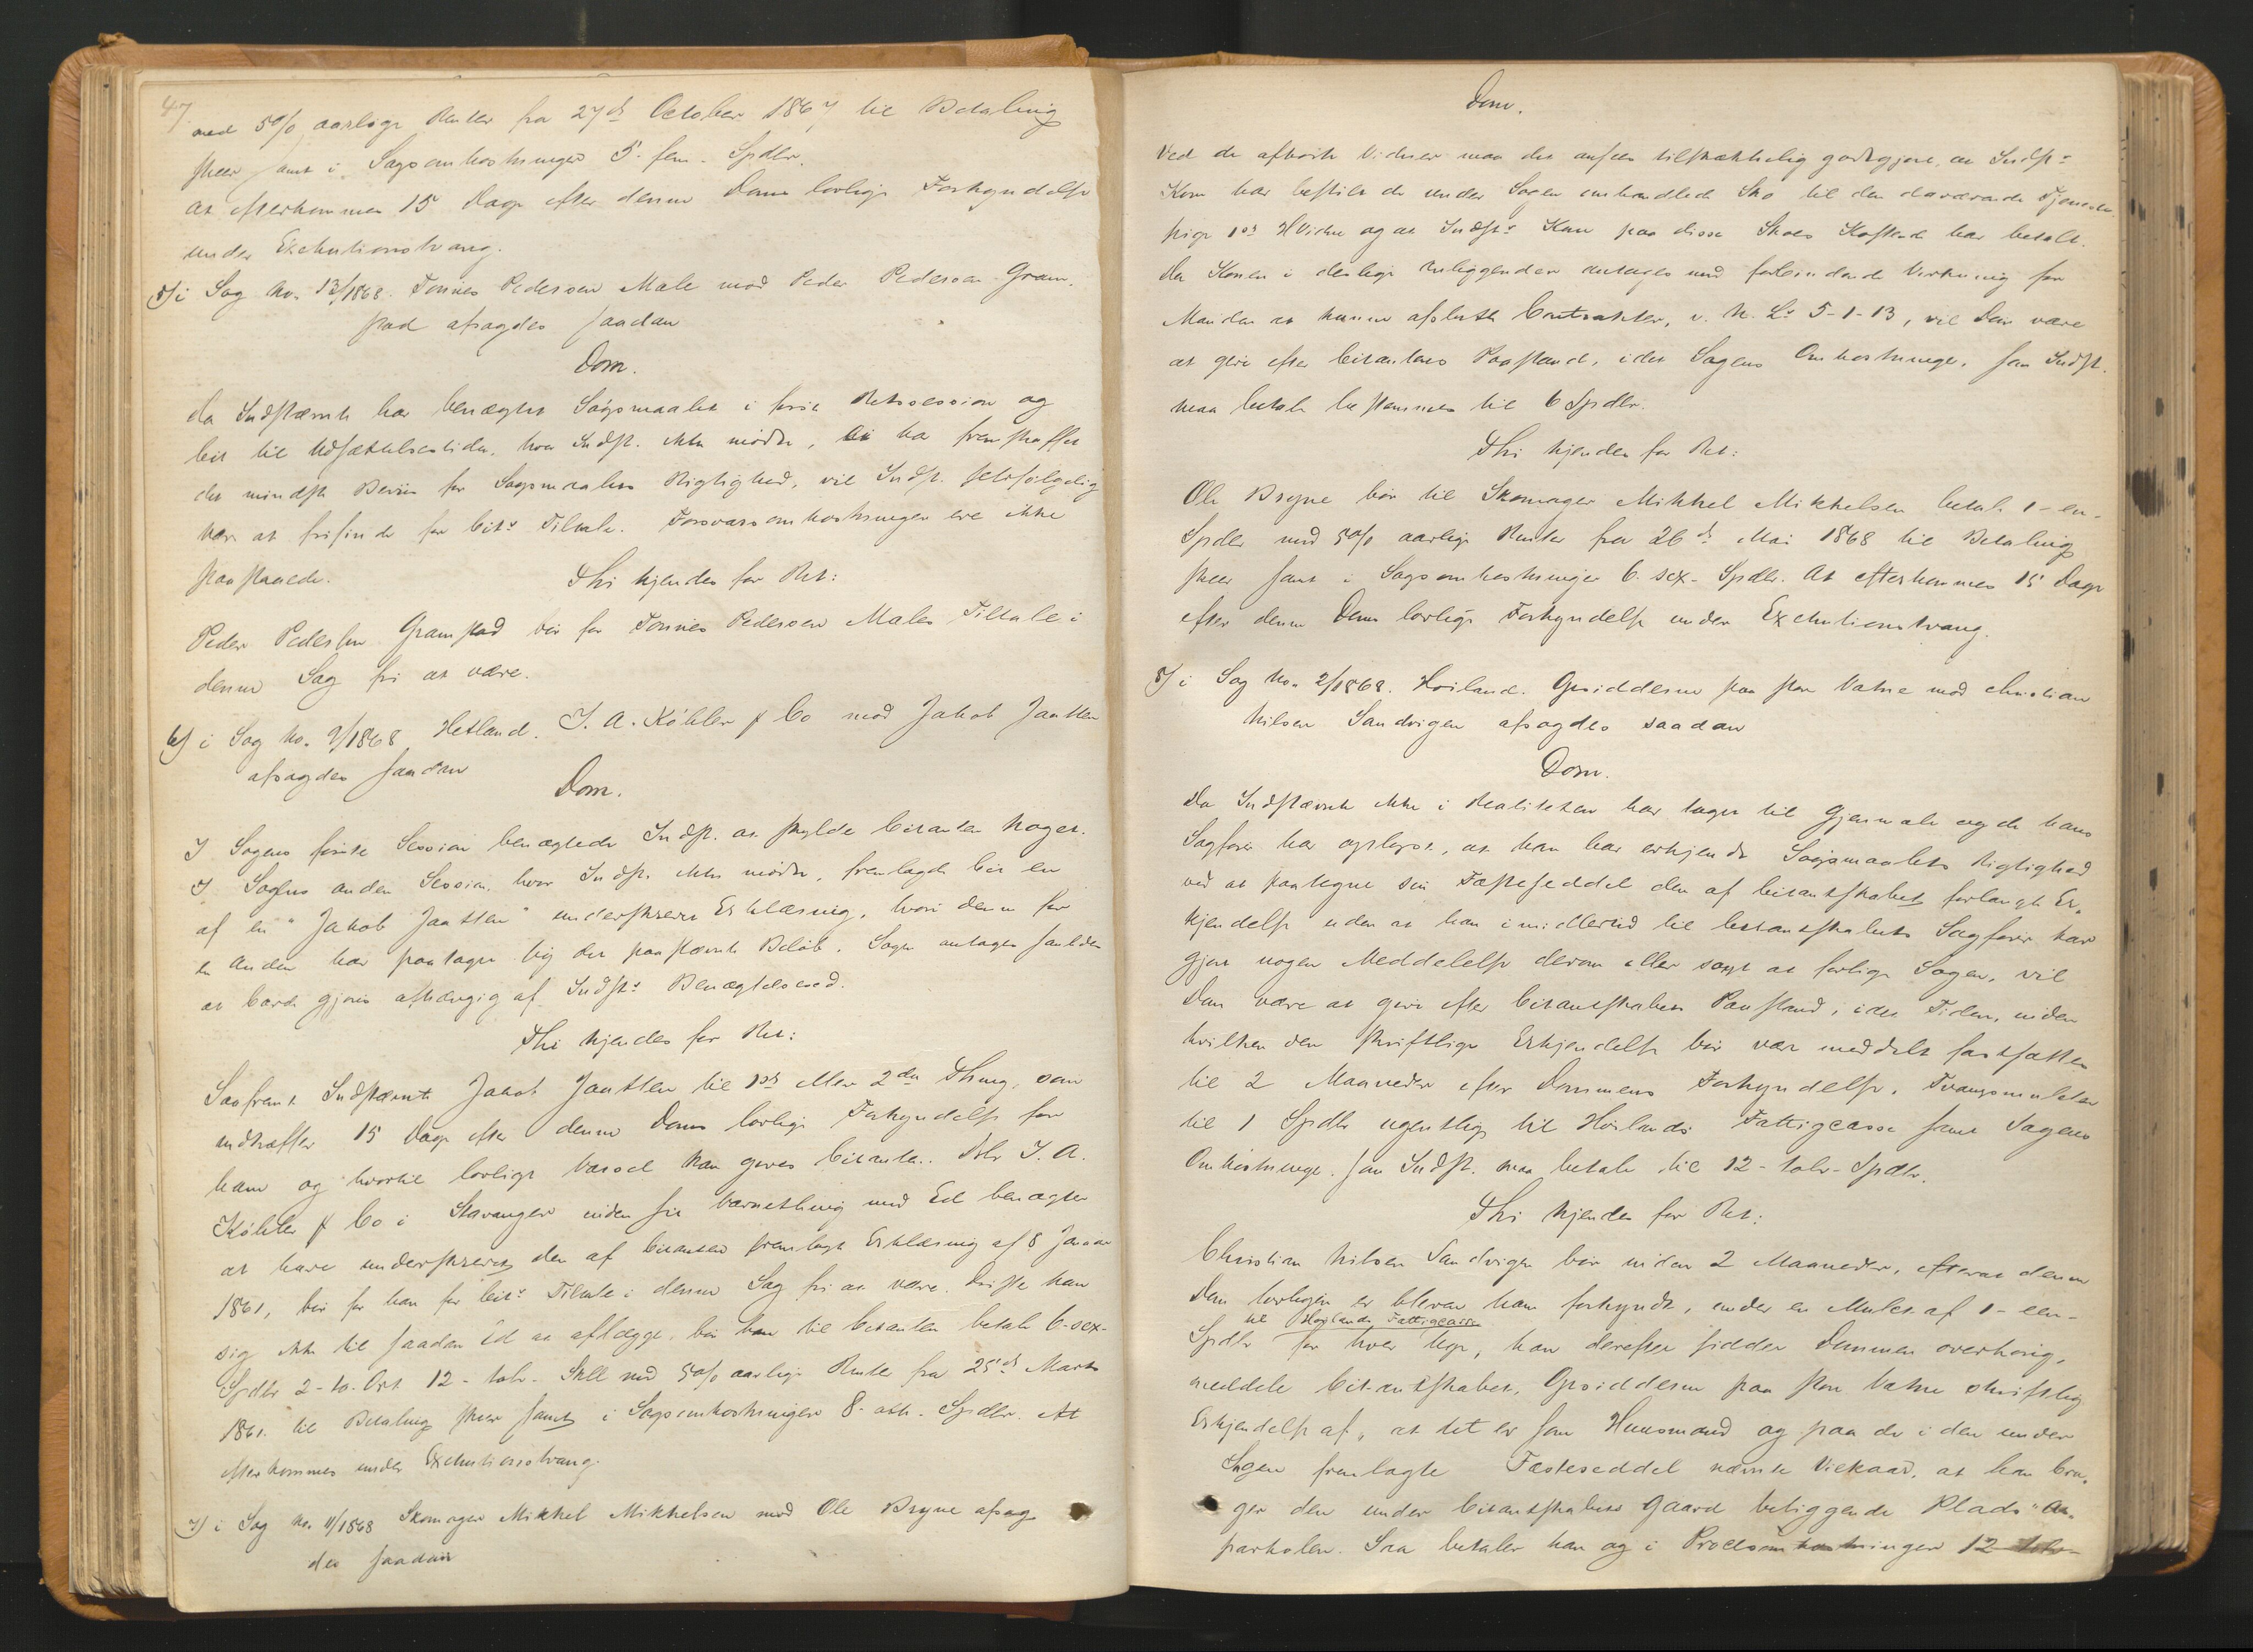 47
med 5% aarlige Renter fra 27de October 1867 til Betaling
skeer samt i Sagsomkostninger 5 fem Spdlr.
At efterkommes 15 Dage efter denne Doms lovlige Forkyndelse
under Exekutionstvang.
5) i Sag No. 13/1868. Tønnes Pedersen Male mod Peder Pedersen Gram-
stad afsagdes saadan
Dom.
Da Indstævnte har benægtet Søgsmaalet i første Retssession og
Cit til Udsættelsestiden, hvor Indst. ikke mødte, ei har fremskaffet
det mindste Beviis for Søgsmaalets Rigtighed, vil Indst. selvfølgelig
være at frifinde for Cits Tiltale. Forsvarsomkostninger ere ikke
paastaaede.
Thi kjendes for Ret:
Peder Pedersen Gramstad bør for Tønnes Pedersen Males Tiltale i
denne Sag fri at være.
6) i Sag No. 9/1868 Hetland. J. A. Køhler & Co mod Jakob Jaatten
afsagdes saadan
Dom.
I Sagens første Session benægtede Indst. at skylde Citanten noget.
I Sagens anden Session, hvor Indst. ikke mødte, fremlagde Cit en
af en "Jakob Jaatten" underskreven Erklæring, hvori denne for
en Anden har paataget sig det paastævnte Beløb. Sagen antages saaledes
at burde gjøres afhængig af Indsts Benægtelseseed.
Thi kjendes for Ret:
Saafremt Indstævnte Jakob Jaatten til 1ste eller 2det Thing, som
indtræffer 15 Dage efter denne Doms lovlige Forkyndelse for
ham og hvortil lovligt Varsel kan gives Citanten J. A.
Køhler & Co i Stavanger inden sit Værnething med Ed benægter
at have underskrevet den af Citanten fremlagte Erklæring af 8 Januar
1861, bør han for Cits Tiltale i denne Sag fri at være. Drister han
sig ikke til saadan Ed at aflægge, bør han til Citanten betale 6-sex-
Spdlr 2-to-Ort 12-tolv-Skll med 5% aarlige Renter fra 25de Marts
1861 til Betaling skeer samt i Sagsomkostninger 8-otte-Spdlr. At
efterkommes under Exekutionstvang.
7) i Sag No. 11/1868 Skomager Mikkel Mikkelsen mod Ole Bryne afsag-
des saadan
Dom.
Ved de afhørte Vidner maa det ansees tilstrækkelig godtgjort, at Indsts
Kone har bestilt de under Sagen omhandlede Sko til den daværende Tjeneste-
pige 1ste Vidne og at Indsts Kone paa disse Skoes Kostende har betalt.
Da Konen i deslige Anliggender antages med forbindende Virkning for
Manden at kunne afslutte Contrakter, v. N. L. 5-1-13, vil Dom være
at give efter Citantens Paastand, idet Sagens Omkostninger, som Indst.
maa betale bestemmes til 6 Spdlr.
Thi kjendes for Ret:
Ole Bryne bør til Skomager Mikkel Mikkelsen betale 1-en-
Spdlr med 5% aarlige Renter fra 26de Mai 1868 til Betaling
skeer samt i Sagsomkostninger 6-sex-Spdlr. At efterkommes 15 Dage
efter denne Doms lovlige Forkyndelse under Exekutionstvang.
8) i Sag No. 2/1868. Høiland. Opsidderne paa store Vatne mod Christian
Nilsen Sandvigen afsagdes saadan
Dom.
Da Indstævnte ikke i Realiteten har taget til Gjenmæle og da hans
Sagfører har oplyst, at han har erkjendt Søgsmaalets Rigtighed
ved at paategne sin Fæsteseddel den af Citantskabet forlangte Er-
kjendelse uden at han imidlertid til Citantskabets Sagfører har
gjort nogen Meddelelse derom eller søgt at forlige Sagen, vil
Dom være at give efter Citantskabets Paastand, idet Tiden, inden
hvilken den skriftlige Erkjendelse bør være meddelt fastsættes
til 2 Maaneder efter Dommens Forkyndelse, Tvangsmulkten
til 1 Spdlr ugentlig til Høilands Fattigcasse samt Sagens
Omkostninger, som Indst. maa betale til 12-tolv-Spdlr.
Thi kjendes for Ret:
Christian Nilsen Sandvigen bør inden 2 Maaneder, efterat denne
Dom lovligen er bleven ham forkyndt, under en Mulct af 1-een-
til Høilands Fattigcasse
Spdlr for hver Uge, han derefter sidder Dommen overhørig,
meddele Citantskabet, Opsidderne paa store Vatne skriftlig
Erkjendelse af, at det er som Huusmand og paa de i den under
Sagen fremlagte Fæsteseddel nævnte Vilkaar, at han bru-
ger den under Citantskabets Gaard beliggende Plads
parholen. Saa betaler han og i Procesomkostninger 12-tolv-